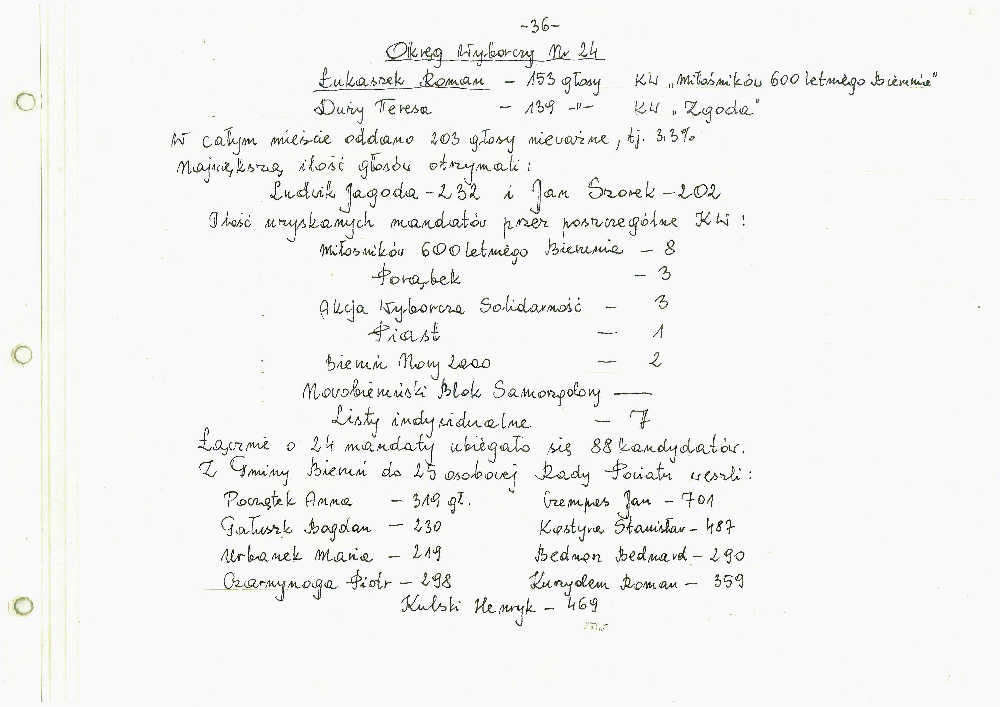 -36-
Okręg Wyborczy Nr 24
Łukaszek Roman - 153 głosy KW „Miłośników 600 letniego Bierunia"
Duży Teresa - 139 -"- KW „Zgoda"
W całym mieście oddano 203 głosy nieważne, tj. 3.3%
Największą ilość głosów otrzymali:
Ludwik Jagoda - 232 i Jan Szorek - 202
Ilość uzyskanych mandatów przez poszczególne KW:
Miłośników 600 letniego Bierunia - 8
Porąbek - 3
Akcja Wyborcza Solidarność - 3
Piast - 1
Bieruń Nowy 2000 - 2
Nowobieruński Blok Samorządowy -
Listy indywidualne - 7
Łącznie o 24 mandaty ubiegało się 88 kandydatów.
Z Gminy Bieruń do 25 osobowej Rady Powiatu weszli:
Początek Anna - 319 gł. Czempas Jan - 701
Gałuszk Bogdan - 230 Kostyra Stanisław - 487
Urbanek Maria - 219 Bednarz Bednard - 290
Czarnynoga Piotr - 298 Kurzydem Roman - 359
Kulski Henryk - 469